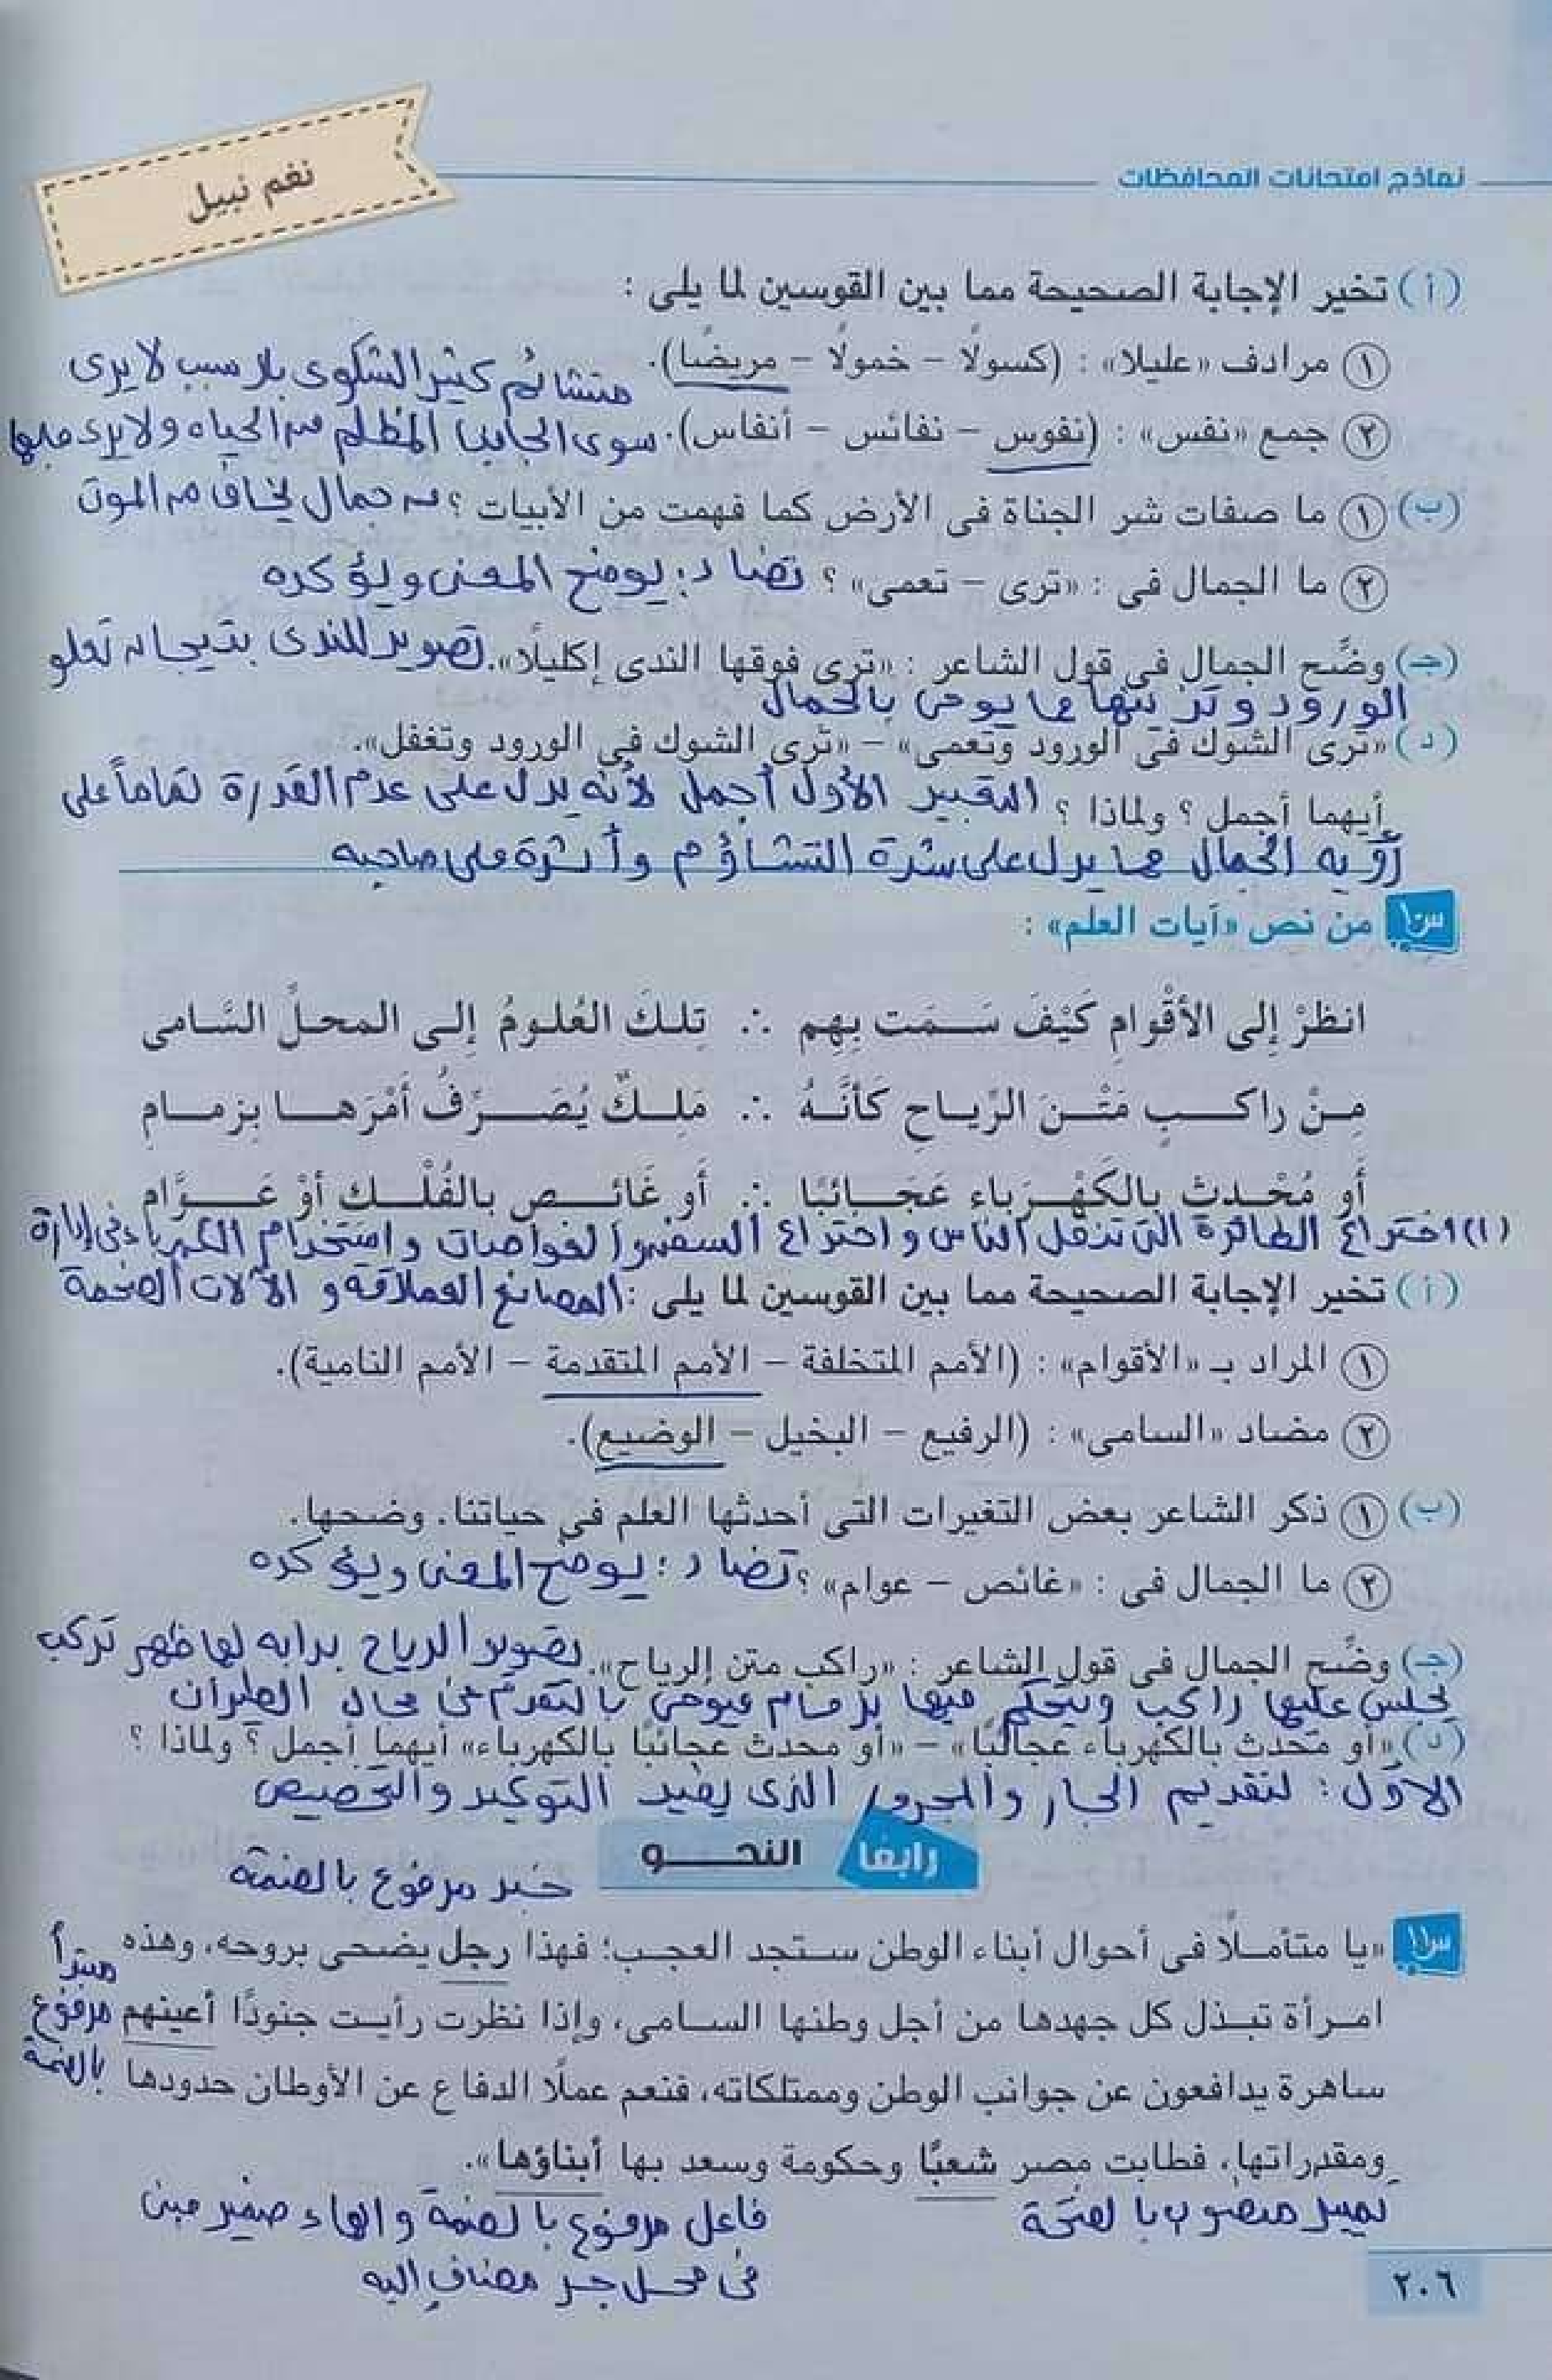 نماذج امتحانات المحافظات
نغم نبيل
(أ) تخير الإجابة الصحيحة مما بين القوسين لما يلى :
١ مرادف «عليلا» : (كسولًا – خمولًا – مريضًا). متشائم كثير الشكوى بلا سبب لا يرى
٢ جمع «نفس» : (نفوس – نفائس – أنفاس). سوى الجانب المظلم من الحياه ولا يرى فيها
(ب) ١ ما صفات شر الجناة فى الأرض كما فهمت من الأبيات ؟ من جمال يخاف من الموت
٢ ما الجمال فى : «ترى – تعمى» ؟ تضاد : يوضح المعنى ويؤكده
(جـ) وضِّح الجمال فى قول الشاعر : «ترى فوقها الندى إكليلًا». تصوير للندى بتيجان تعلو
الورود وتزينها مما يوحى بالجمال
(د) «ترى الشوك فى الورود وتعمى» – «ترى الشوك فى الورود وتغفل».
أيهما أجمل ؟ ولماذا ؟ التعبير الأول أجمل لأنه يدل على عدم القدرة تماماً على
رؤيه الجمال مما يدل على شدة التشاؤم وأثره على صاحبه
س١٠ من نص «آيات العلم» :
انظرْ إلى الأقْوامِ كَيْفَ سَـمَت بِهِم ∴ تِلـكَ العُلـومُ إلـى المحـلِّ السَّـامى
مِـنْ راكـــبٍ مَتْـــنَ الرِّيــاحِ كَأنَّــهُ ∴ مَلِــكٌ يُصَـــرِّفُ أمْرَهـــا بِزمـــامِ
أو مُحْـدثٍ بالكَهْـرَباء عَجَـائبًا ∴ أو غَائــصٍ بالفُلْــك أوْ عَــوَّامِ
(١) اختراع الطائرة التى تنقل الناس واختراع السفن والغواصات واستخدام الكهرباء فى إدارة
(أ) تخير الإجابة الصحيحة مما بين القوسين لما يلى : المصانع العملاقة و الآلات الضخمة
١ المراد بـ «الأقوام» : (الأمم المتخلفة – الأمم المتقدمة – الأمم النامية).
٢ مضاد «السامى» : (الرفيع – البخيل – الوضيع).
(ب) ١ ذكر الشاعر بعض التغيرات التى أحدثها العلم فى حياتنا. وضحها.
٢ ما الجمال فى : «غائص – عوام» ؟ تضاد : يوضح المعنى ويؤكده
(جـ) وضِّح الجمال فى قول الشاعر : «راكب متن الرياح». تصوير الرياح بدابه لها ظهر تركب
يجلس عليها راكب ويتحكم فيها بزمام فيوحى بالتقدم فى مجال الطيران
(د) «أو محدث بالكهرباء عجائبًا» – «أو محدث عجائبًا بالكهرباء» أيهما أجمل ؟ ولماذا ؟
الأول : لتقديم الجار والمجرور الذى يفيد التوكيد والتخصيص
رابعًا النحـــو
خبر مرفوع بالضمة
س١١ «يا متأمـلًا فى أحوال أبناء الوطن ستجد العجب؛ فهذا رجل يضحى بروحه، وهذه مبتدأ
امـرأة تبـذل كل جهدها من أجل وطنها السـامى، وإذا نظرت رأيـت جنودًا أعينهم مرفوع
ساهرة يدافعون عن جوانب الوطن وممتلكاته، فنعم عملًا الدفاع عن الأوطان حدودها بالضمة
ومقدراتها، فطابت مصر شعبًا وحكومة وسعد بها أبناؤها».
تمييز منصوب بالفتحة
فاعل مرفوع بالضمة والهاء ضمير مبنى
فى محل جر مضاف إليه
٢٠٦